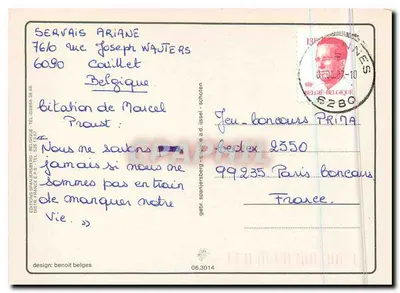 SERVAIS ARIANE
76/0 rue Joseph WAUTERS
6090 Couillet
Belgique
Citation de Marcel
Proust:
« Nous ne savons
jamais si nous ne
sommes pas en train
de manquer notre
vie. »
design: benoit belges
06.3014
13F
BELGIË-BELGIQUE
6280
Jeu-concours PRIMA
Cedex 2350
99235 Paris Concours
France.